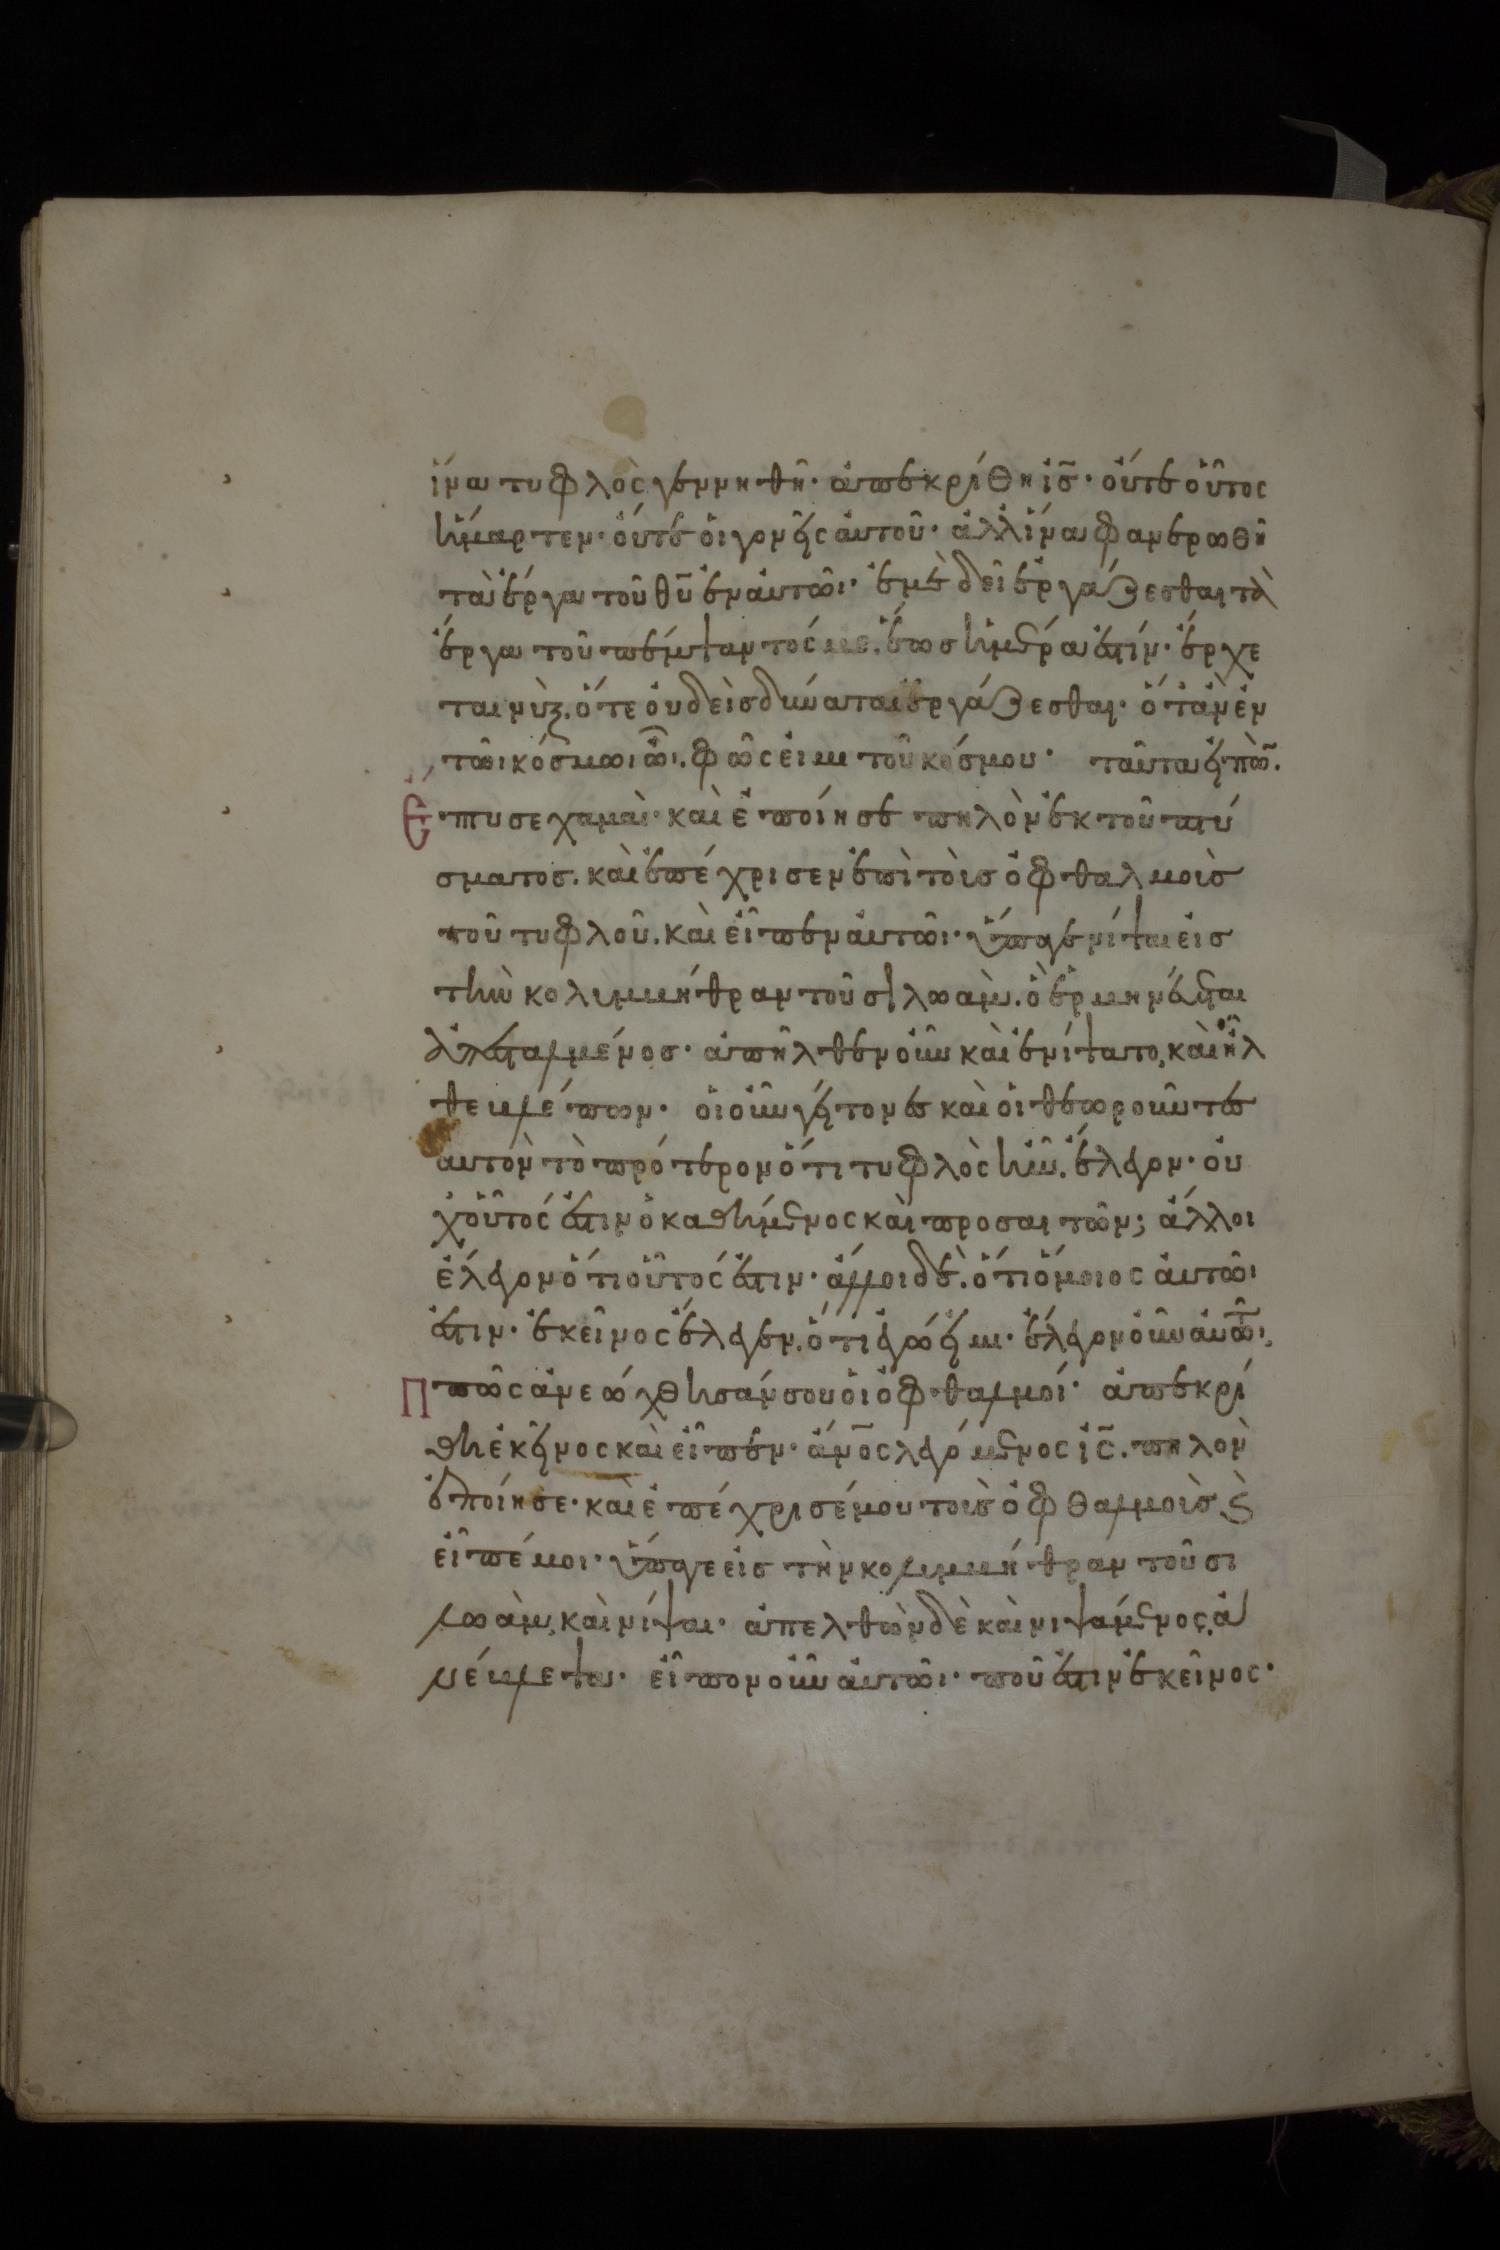 ἵνα τυφλὸς γεννηθῆ· ἀπεκρίθη ἰ̅σ̅· οὔτε οὗτος
ἥμαρτεν· οὔτε οἱ γονεῖς αὐτοῦ· ἀλλ ἵνα φανερωθῆ
τὰ ἔργα τοῦ θ̅υ̅ ἐν αὐτῶι· ἐμὲ δεῖ ἐργάζεσθαι τὰ
ἔργα τοῦ πέμψαντός με. ἕως ἡμέρα ἐστίν· ἔρχε
ται νὺξ. ὅτε οὐδεὶς δύναται ἐργάζεσθαι· ὅτὰν ἐν
τῶι κόσμωι ὦι. φῶς εἰμι τοῦ κόσμου· ταῦτα εἰπὼ̅.
Ἔπτυσε χαμαὶ· καὶ ἐποίησε πηλὸν ἐκ τοῦ πτύ
σματος. καὶ ἐπέχρισεν ἐπὶ τοὶς ὀφθαλμοὶς
τοῦ τυφλοῦ. καὶ εἶπεν αὐτῶι· ὕπαγε νίψαι εἰς
τὴν κολυμμήθραν τοῦ σιλωάμ. ὃ ἑρμηνέυεται
ἀπεσταλμένος· ἀπῆλθεν οὖν καὶ ἐνίψατο, καὶ ἦλ
θε βλέπων· οἱ οὖν γείτονες καὶ οἱ θεωροῦντες
αὐτὸν τὸ πρότερον ὅτι τυφλὸς ἦν. ἔλεγον· οὐ
χ οὗτός ἐστιν ὁ καθήμενος καὶ προσαιτῶν; ἄλλοι
ἔλεγον ὅτι οὗτός ἐστιν· ἄλλοι δὲ. ὅτι ὅμοιος αὐτῶι
ἐστιν· ἐκεῖνος ἔλεγεν. ὅτι ἐγώ εἰμι· ἔλεγον οὖν αὐτῶι,
Ππῶς ἀνεώχθησάν σου οἱ ὀφθαλμοί· ἀπεκρί
θη ἐκεῖνος καὶ εἶπεν· ἄν̅ο̅ς λεγόμενος ἰ̅ς̅. πηλὸν
ἐποίησε· καὶ ἐπέχρισέ μου τοὶς ὀφθαλμοὶς ϗ
εἶπέ μοι· ὕπαγε εἰς τὴν κολυμμήθραν τοῦ σι
λωὰμ, καὶ νίψαι· ἀπελθὼν δὲ καὶ νιψάμενος, ἀ
νέβλεψα· εἶπον οὖν αὐτῶι· ποῦ ἐστιν ἐκεῖνος·